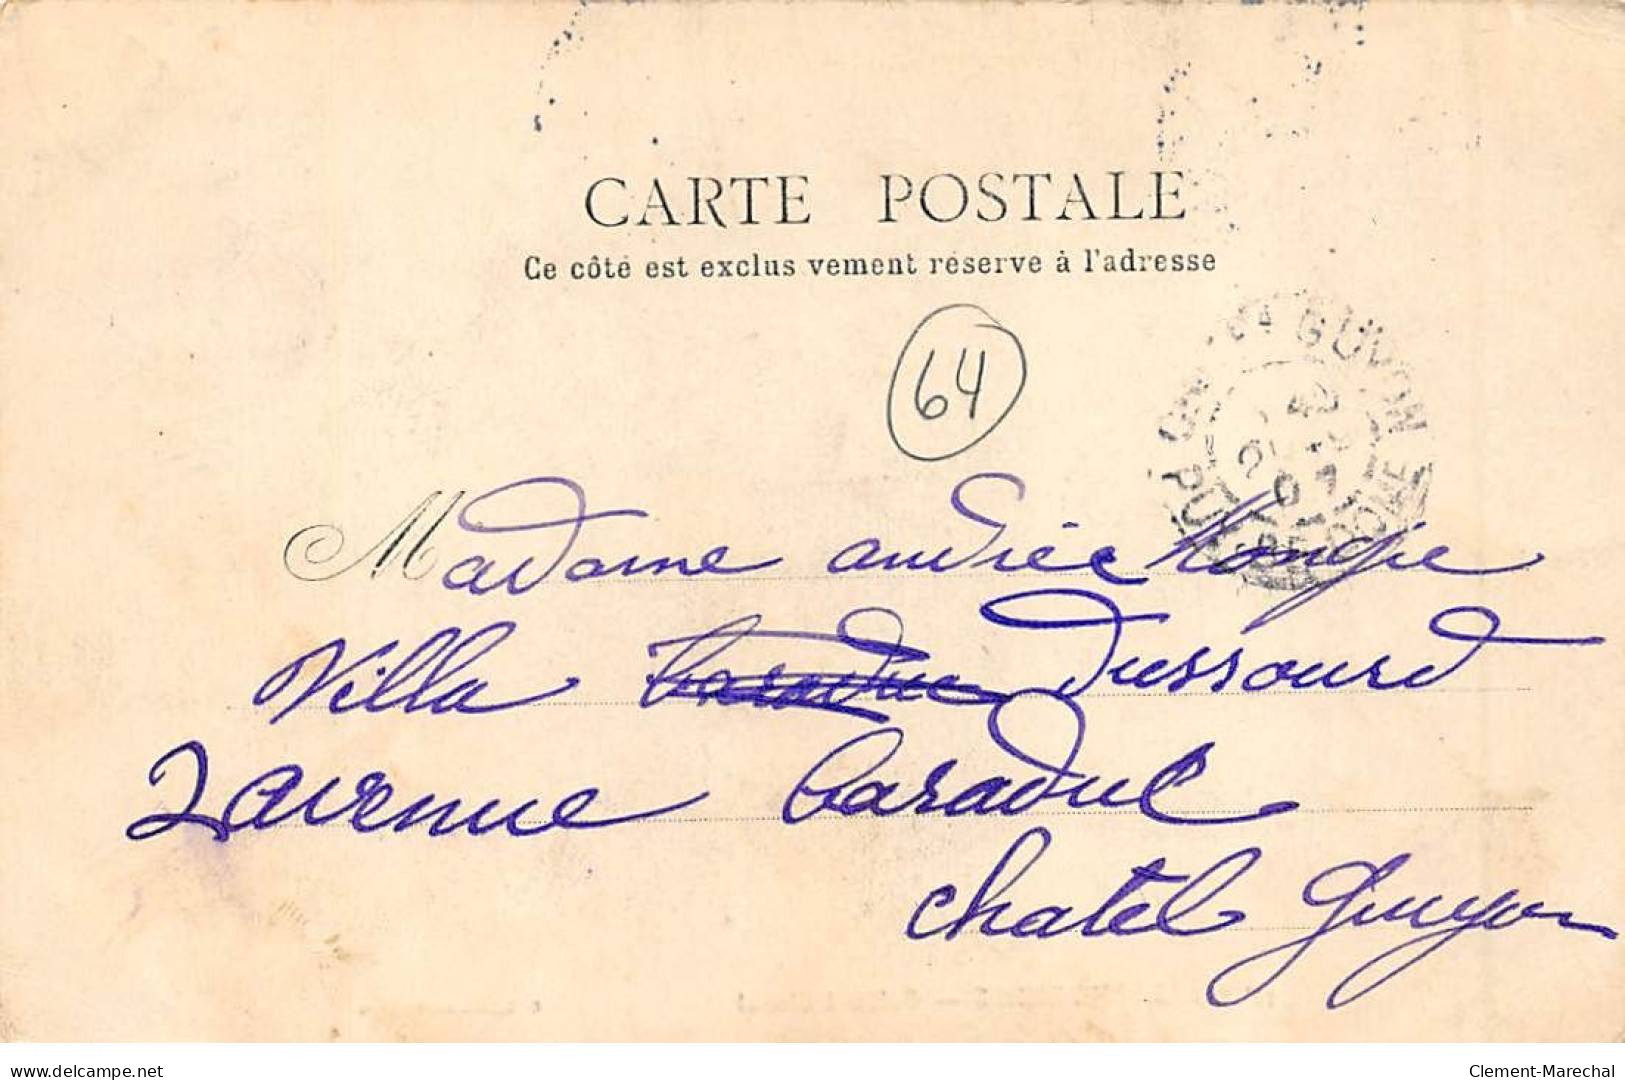 CARTE POSTALE
Ce côté est exclus vement réservé à l'adresse
64
GUYON
PUY DE DOME
Madame andrée
Villa Baraduc Dussourd
2 avenue Baraduc
Chatel Guyon
delcampe.net
Clement-Marechal